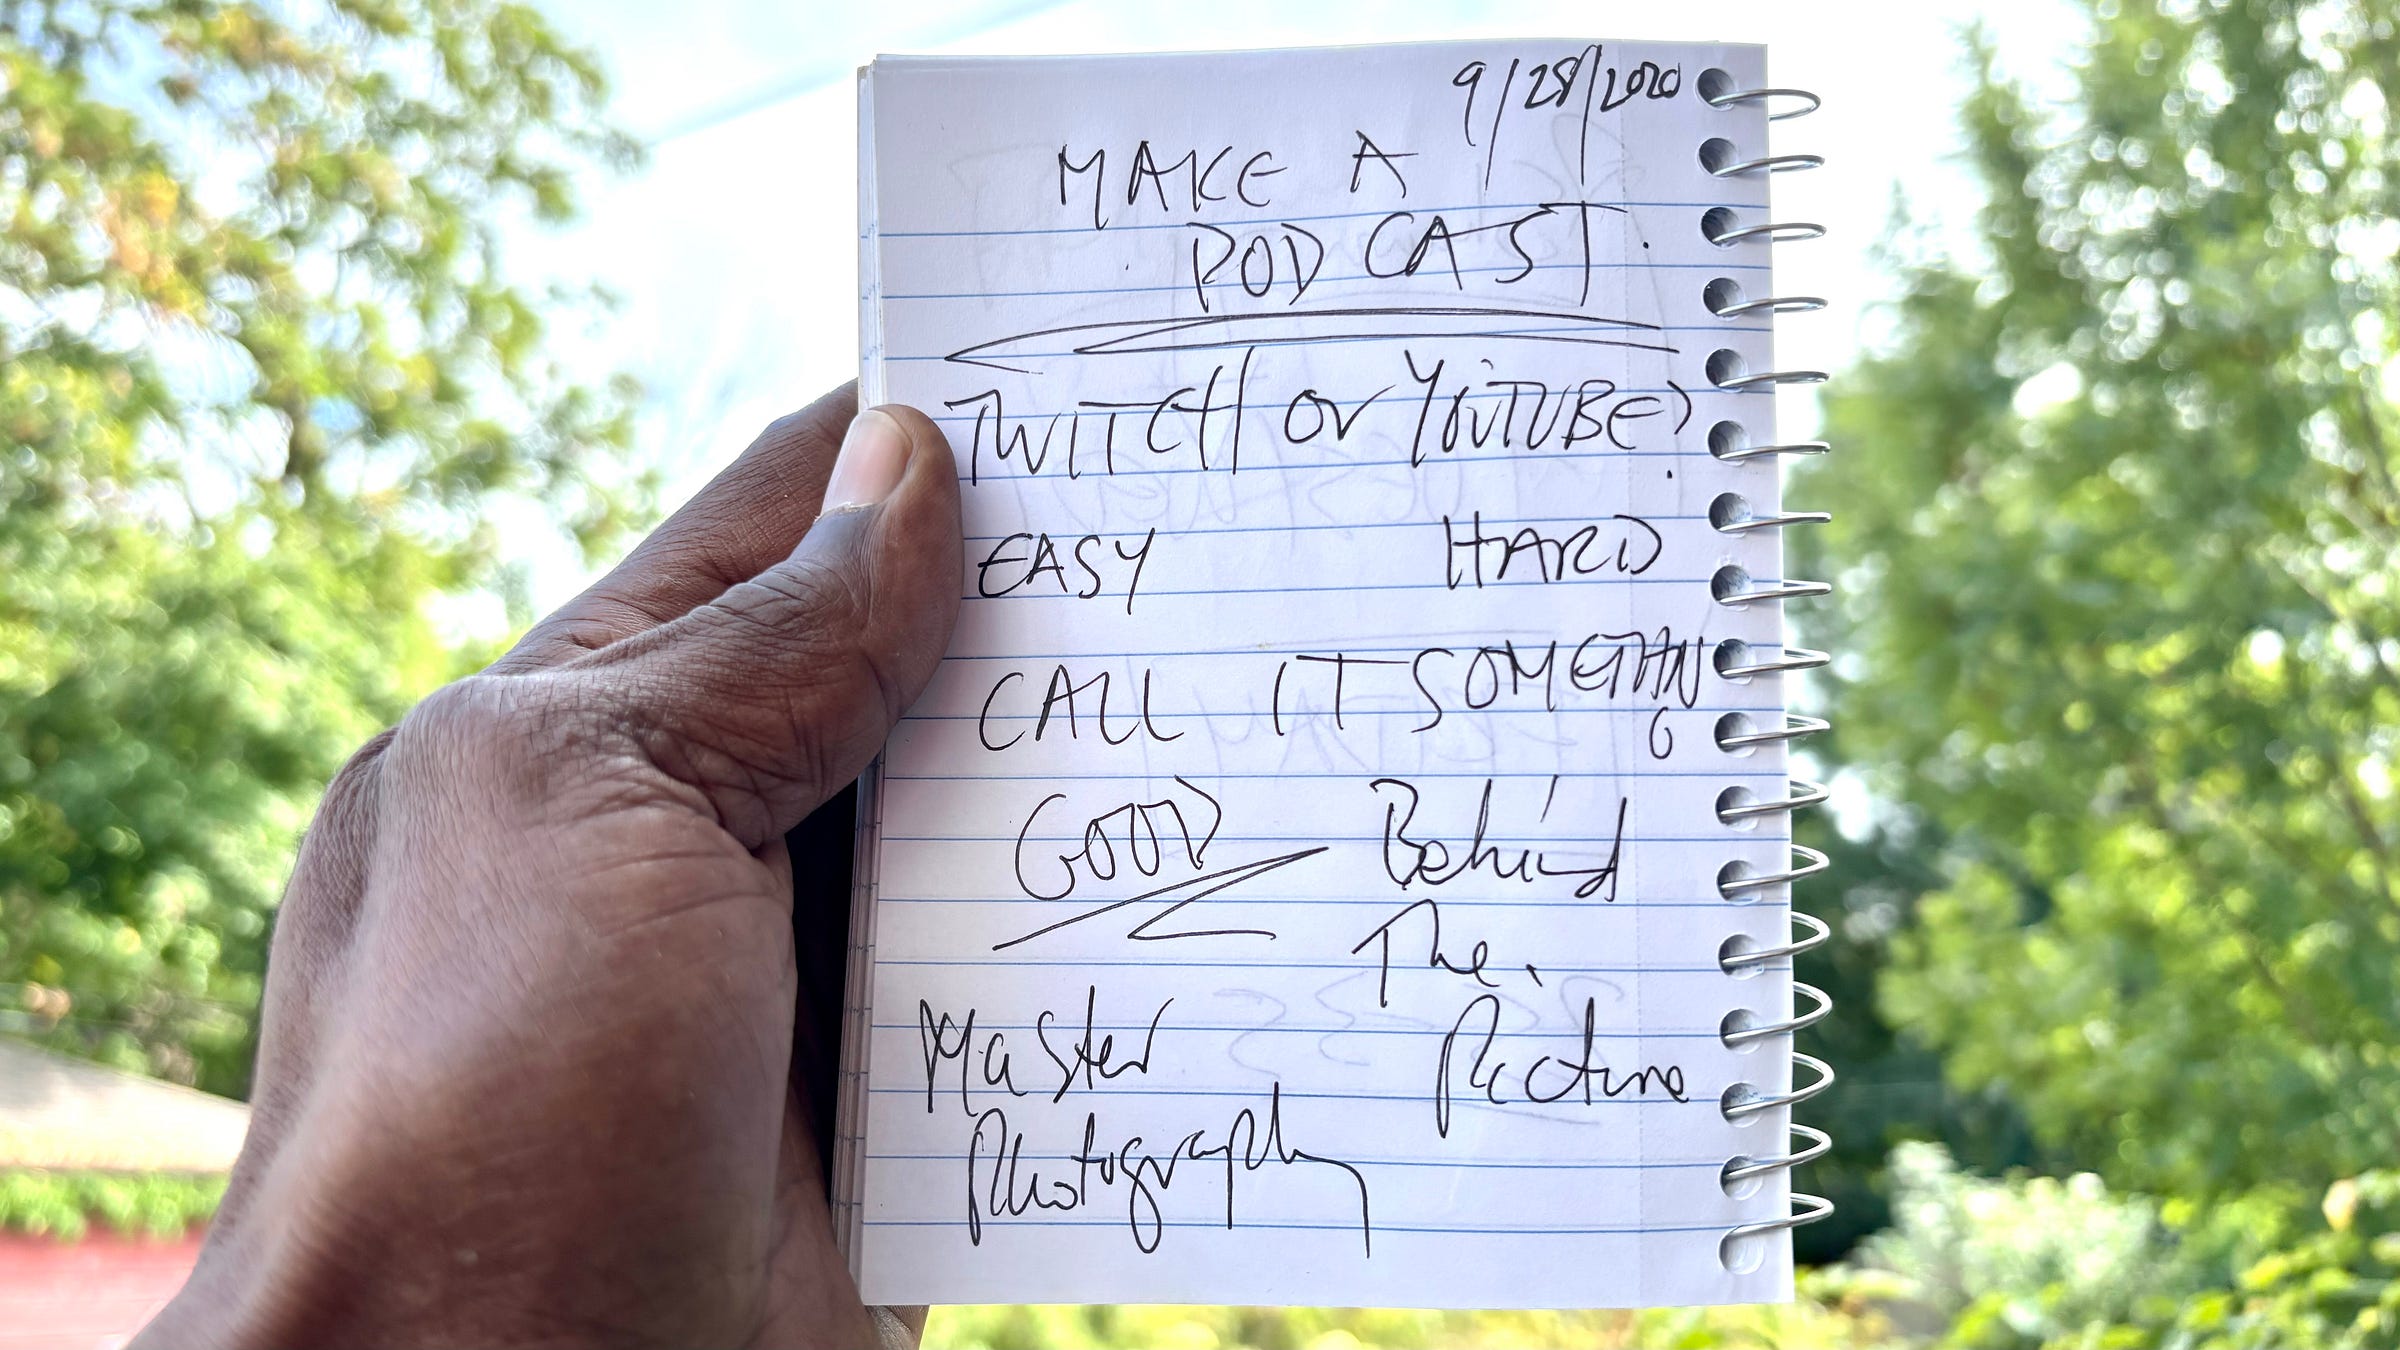 9/28/2020
MAKE A
PODCAST.
TWITCH or YOUTUBE?
EASY HARD
CALL IT SOMETHIN
G
GOOD Behind
The
Master Picture
Photography